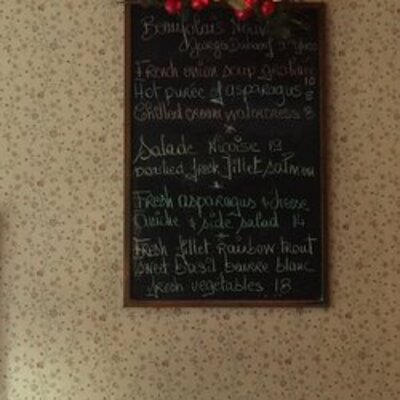 Beaujolais Nouv
Georges Duboeuf
French onion soup gratinee
10
Hot purée of asparagus 8
Chilled cream watercress 8
Salade Nicoise 19
poached fresh fillet salmon
Fresh asparagus & cheese
Quiche & side salad 14
Fresh fillet Rainbow trout
sweet Basil beurre blanc
fresh vegetables 18